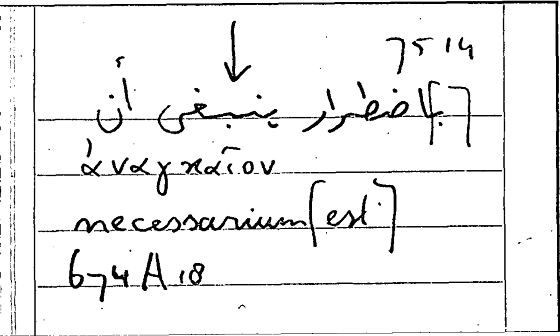 75 14
[باضطرار] ينبغى أن
ἀναγκαῖον
necessarium [est]
674 A 18